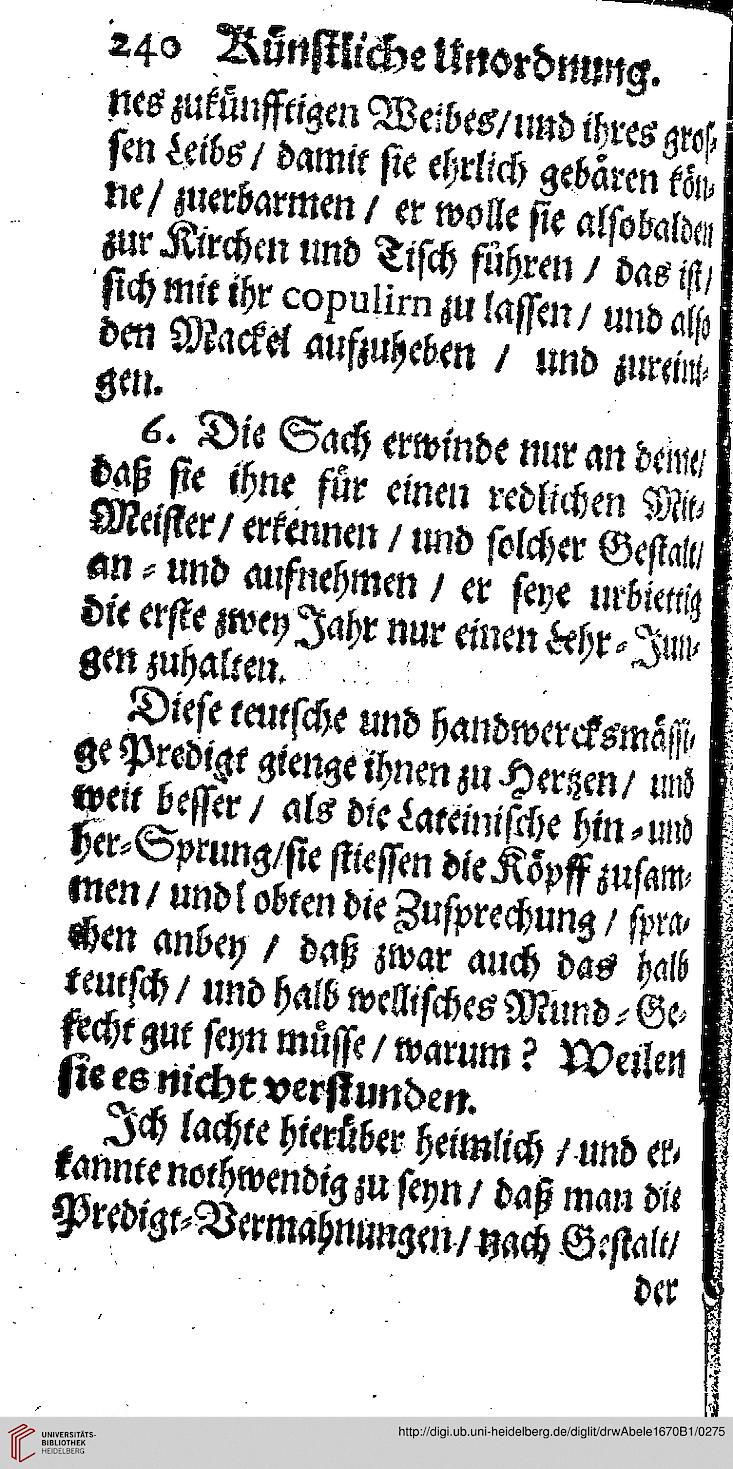 240 Kůnstliche Unordnung.
nes zukůnfftigen Weibes/und ihres gros-
sen Leibs / damit sie ehrlich gebåren kön-
ne / zuerbarmen / er wolle sie alsobalden
zur Kirchen und Tisch fůhren / das ist/
sich mit ihr copulirn zu lassen / und also
den Mackel aufzuheben / und zureini-
gen.
6. Die Sach erwinde nur an deme/
daß sie ihne fůr einen redlichen Mit-
Meister / erkennen / und solcher Gestalt/
an- und aufnehmen / er seye urbiettig
die erste zwey Jahr nur einen Lehr-Jun-
gen zuhalten.
Diese teutsche und handwercksmåssi-
ge Predigt gienge ihnen zu Hertzen / und
weit besser / als die Lateinische hin- und
her-Sprung/sie stiessen die Köpff zusam-
men / und lobten die Zusprechung / spra-
chen anbey / daß zwar auch das halb
teutsch / und halb wellisches Mund-Ge-
kecht gut seyn můsse / warum? Weilen
sie es nicht verstunden.
Ich lachte hierůber heimlich / und er-
kannte nothwendig zu seyn / daß man die
Predigt-Vermahnungen / nach Gestalt/
der
UNIVERSITÄTS-
BIBLIOTHEK
HEIDELBERG
http://digi.ub.uni-heidelberg.de/diglit/drwAbele1670B1/0275